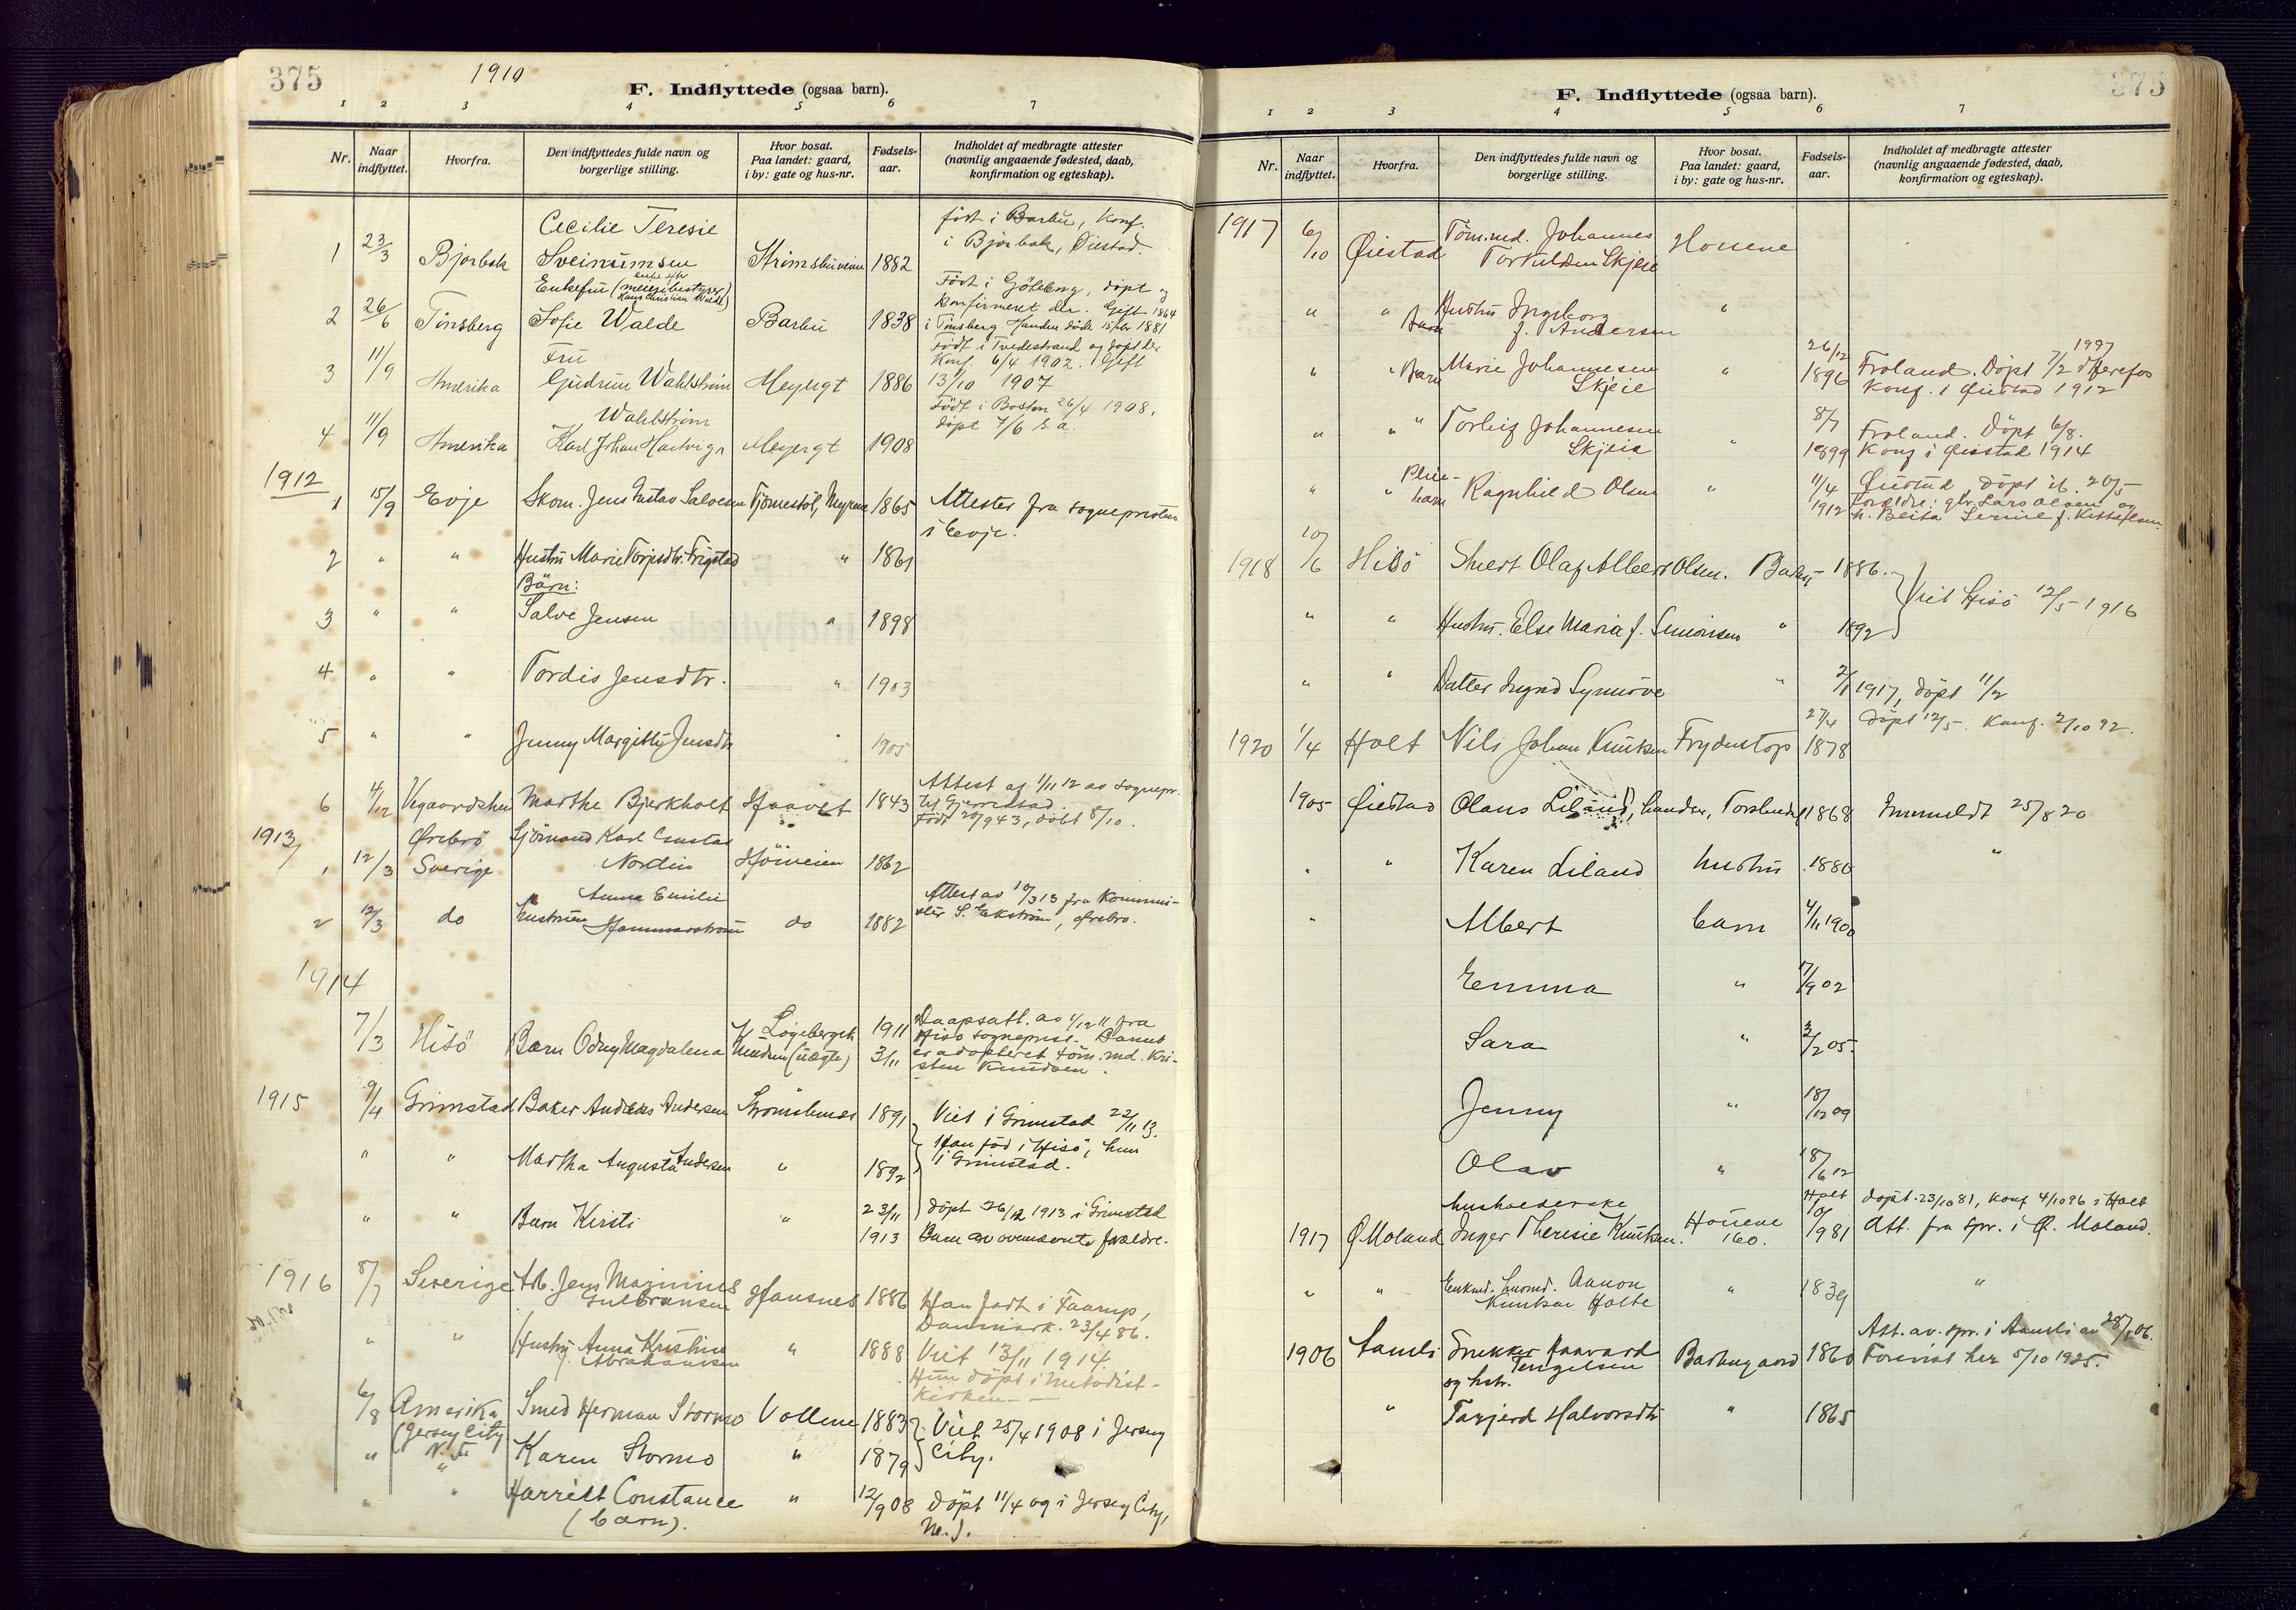 375
1910
F. Indflyttede (ogsaa barn).
1 2 3 4 5 6 7
Nr. Naar indflyttet. Hvorfra. Den indflyttedes fulde navn og borgerlige stilling. Hvor bosat. Paa landet: gaard, i by: gate og hus-nr. Fødsels-aar. Indholdet af medbragte attester (navnlig angaaende fødested, daab, konfirmation og egteskap).
Cecilie Teresie født i Barbu, Konf.
1 23/3 Bjorbæk 1882 i Bjorbæk, Øiestad.
Enkefru Født i Göteborg, døpt og
konfirmeret der. Gift 1864
2 26/6 Tønsberg Sofie Walde Barbu 1838 i Tønsberg. Manden døde 1881
Fru Født i Tvedestrand og døpt der
Konf. 6/4 1902. Gift
3 11/9 Amerika Gudrun Wahlstrøm Meyergt 1886 13/10 1907
Wahlstrøm Født i Boston 26/4 1908,
døpt 7/6 s.a.
4 11/9 Amerika Karl Johan Hartvig Meyergt 1908
1912
1 15/9 Evje Skom. Jens Gustav Salvesen 1865 Attester fra sogneprøsten
i Evje.
2 " " Hustru Marie Torjusdtr. Frigstad " 1861
Børn:
3 " " Salve Jensen " 1898
4 " " Tordis Jensdtr. " 1903
5 " " Jenny Margitte Jensdtr " 1905
Attest af 1/11 12 av sognepr.
6 4/12 Vegaardshei Marthe Bjerkholt 1843 til Gjerrestad.
Født 943, døbt 8/10.
1913 Ørebrø Sjømand Karl Gustav
1 12/3 Sverige Nordin 1862
Anna Emilie
2 12/3 do hustruen Hammarstrøm do 1882 Attest av 10/3 13 fra Kommi-
S. Ekstrøm, Ørebro.
1914
7/3 Hisö Barn Odny Magdalena 1911 Daapsatt. av 4/12 11 fra
Knudsen (uægte) 3/11 Hisø sogneprest. Barnet
er adopteret tøm.md. Kri-
sten Knudsen.
1915 9/4 Grimstad Baker Anders Andersen Strømsbunes 1891 Viet i Grimstad 22/11 13.
Han fød i Hisö, hun
" " Martha Augusta Andersen " 1892 i Grimstad.
" " Barn Kirsti " 23/11 døpt 26/12 1913 i Grimstad
1913 Barn av ovennevnte forældre.
1916 8/7 Sverige Arb. Jens Magninus
Gulbransen Hansnes 1886 Han født i Taarup,
Danmark. 23/4 86.
" " Hustru Anna Kristine " 1888 Viet 13/11 1914.
f. Abrahamsen Hun døpt i Metodist-
kirken
6/8 Amerika Smed Herman Stormo Vollene 1883 Viet 25/4 1908 i Jersey
(Jersey City City.
" N.J. Karen Stormo " 1879
" " Harriett Constance " 12/9 08 døpt 11/4 09 i Jersey City,
(barn). N.J.
375
F. Indflyttede (ogsaa barn).
1 2 3 4 5 6 7
Nr. Naar indflyttet. Hvorfra. Den indflyttedes fulde navn og borgerlige stilling. Hvor bosat. Paa landet: gaard, i by: gate og hus-nr. Fødsels-aar. Indholdet af medbragte attester (navnlig angaaende fødested, daab, konfirmation og egteskap).
1917 6/10 Øiestad Tøm.md. Johannes
Torkildsen Skjeie
" " Hustru Ingeborg "
f. Andersen
" " Barn Marie Johannesen " 26/12 1896 Froland. Døpt 7/2 1897 i Herefos
Skjeie Konf. i Øiestad 1912
" " " Torleif Johannesen " 8/7 1899 Froland. Døpt 6/8.
Skjeie Konf i Øiestad 1914
" " Pleie-barn Ragnhild Olsen " 11/4 1912 Øiestad, døpt 20/5
Forældre: Lars Olsen og
1918 10/6 Hisö Olaf Albert Olsen. Barbu 1886. Viet Hisö 12/5 1916
" " Hustru. Else Maria f. Simonsen " 1892
" " Datter Ingrid Synnøve " 2/1 1917, døpt 11/2
1920 1/4 Holt Nils Johan Knutsen 27/4 1878 Døpt 12/5. Konf. 2/10 92.
1905 Øiestad Olaus Liland, 1868 Innmeldt 25/8 20
" " Karen Liland hustru 1880 "
" Albert barn 4/11 1900
Emma " 02
Sara " 3/2 05.
Jenny " 18/12 09
Olav " 18/6 12
husholderske Holt døpt 23/10 81, Konf 4/10 96 i Holt
1917 Ø. Moland Inger Theresie Knutsen. 160. 9 81 Att. fra spr. i Ø. Moland.
" " Enkmd. Aanon
Knutsen Holte " 1839 "
Att. av. spr. i Aamli av 28/5 06.
1906 Aamli Snekker Haavard
Tengelsen Barbugaard 1860 Forevist her 5/10 1925.
og hstr.
" Tarjerd Halvorsdtr " 1865